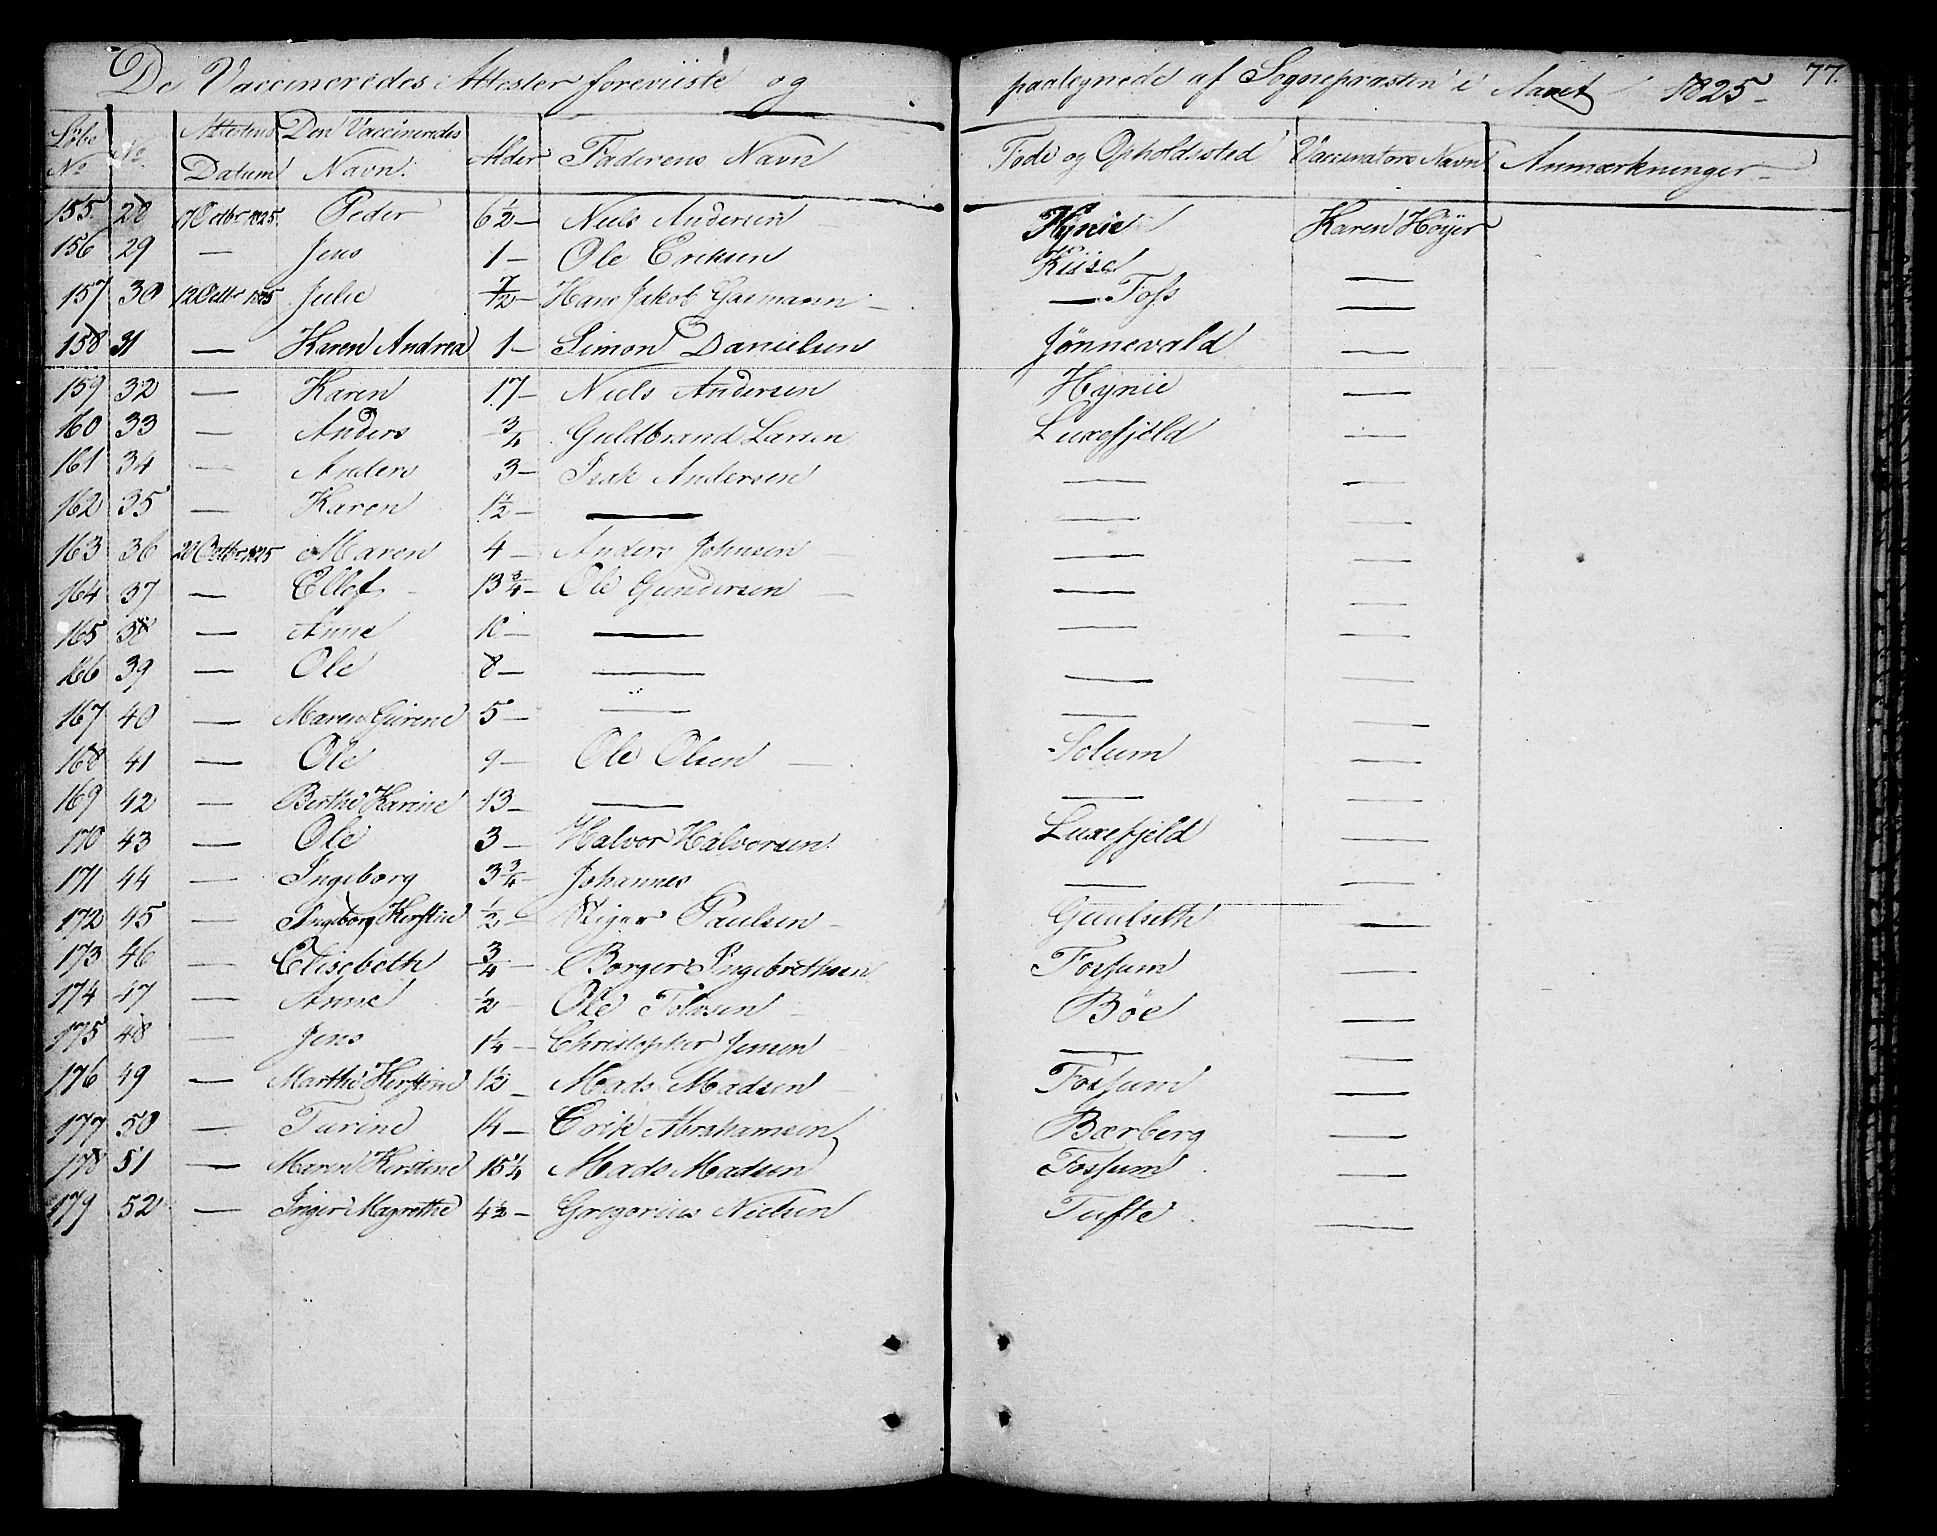 De Vaccineredes Attester foreviiste og paategnede af Sognepræsten i Aaret 1825 77.
Løbe No. No. Attestens Datum Den Vaccineredes Navn. Alder Faderens Navn Føde og Opholdssted Vaccinators Navn Anmærkninger
155. 28 7 Octbr 1825. Peder 6 1/2 — Niels Andersen Hynie Karen Høyer
156 29 — Jens 1 — Ole Eriksen Kiise —
157 30 12 Octbr 1825 Julie 7/12 — Hans Jakob Gasmann — Foss —
158 31 — Karen Andrea 1 — Simon Danielsen Jønnevald —
159 32 — Karen 17 — Niels Andersen Hynie —
160 33 — Anders 3/4 Guldbrand Larsen Luxefjeld —
161 34 — Anders 3 — Isak Andersen — —
162 35 — Karen 1/2 — — — —
163 36 20 Octbr 1825 Maren 4 — Anders Johnsen — —
164 37 — Ellef 13 3/4 — Ole Gundersen — —
165 38 — Anne 10 — — — —
166 39 — Ole 8 — — — —
167 40 — Maren Gurine 5 — — — —
168 41 — Ole 9 — Ole Olsen Solum —
169 42 — Berthe Karine 13 — — — —
170 43 — Ole 3 — Halvor Halvorsen Luxefjeld —
171 44 — Ingeborg 3 3/4 — Johannes — —
172 45 — Ingeborg Kirstine 1/2 — Paulsen Gaulseth —
173 46 — Elisebeth 3/4 — Borger Ingebrethsen Fossum —
174 47 — Anne 1/2 — Ole Tolvsen Böe —
175 48 — Jens 1 1/4 — Christopher Jensen — —
176 49 — Marthe Kirstine 1 1/2 — Mads Madsen Fossum —
177 50 — Turine 14 — Erik Abrahamsen Bærberg —
178 51 — Maren Kirstine 15 1/4 Mads Madsen Fossum —
179 52 — Inger Magrethe 4 1/2 — Gregorius Nielsen Tufte —